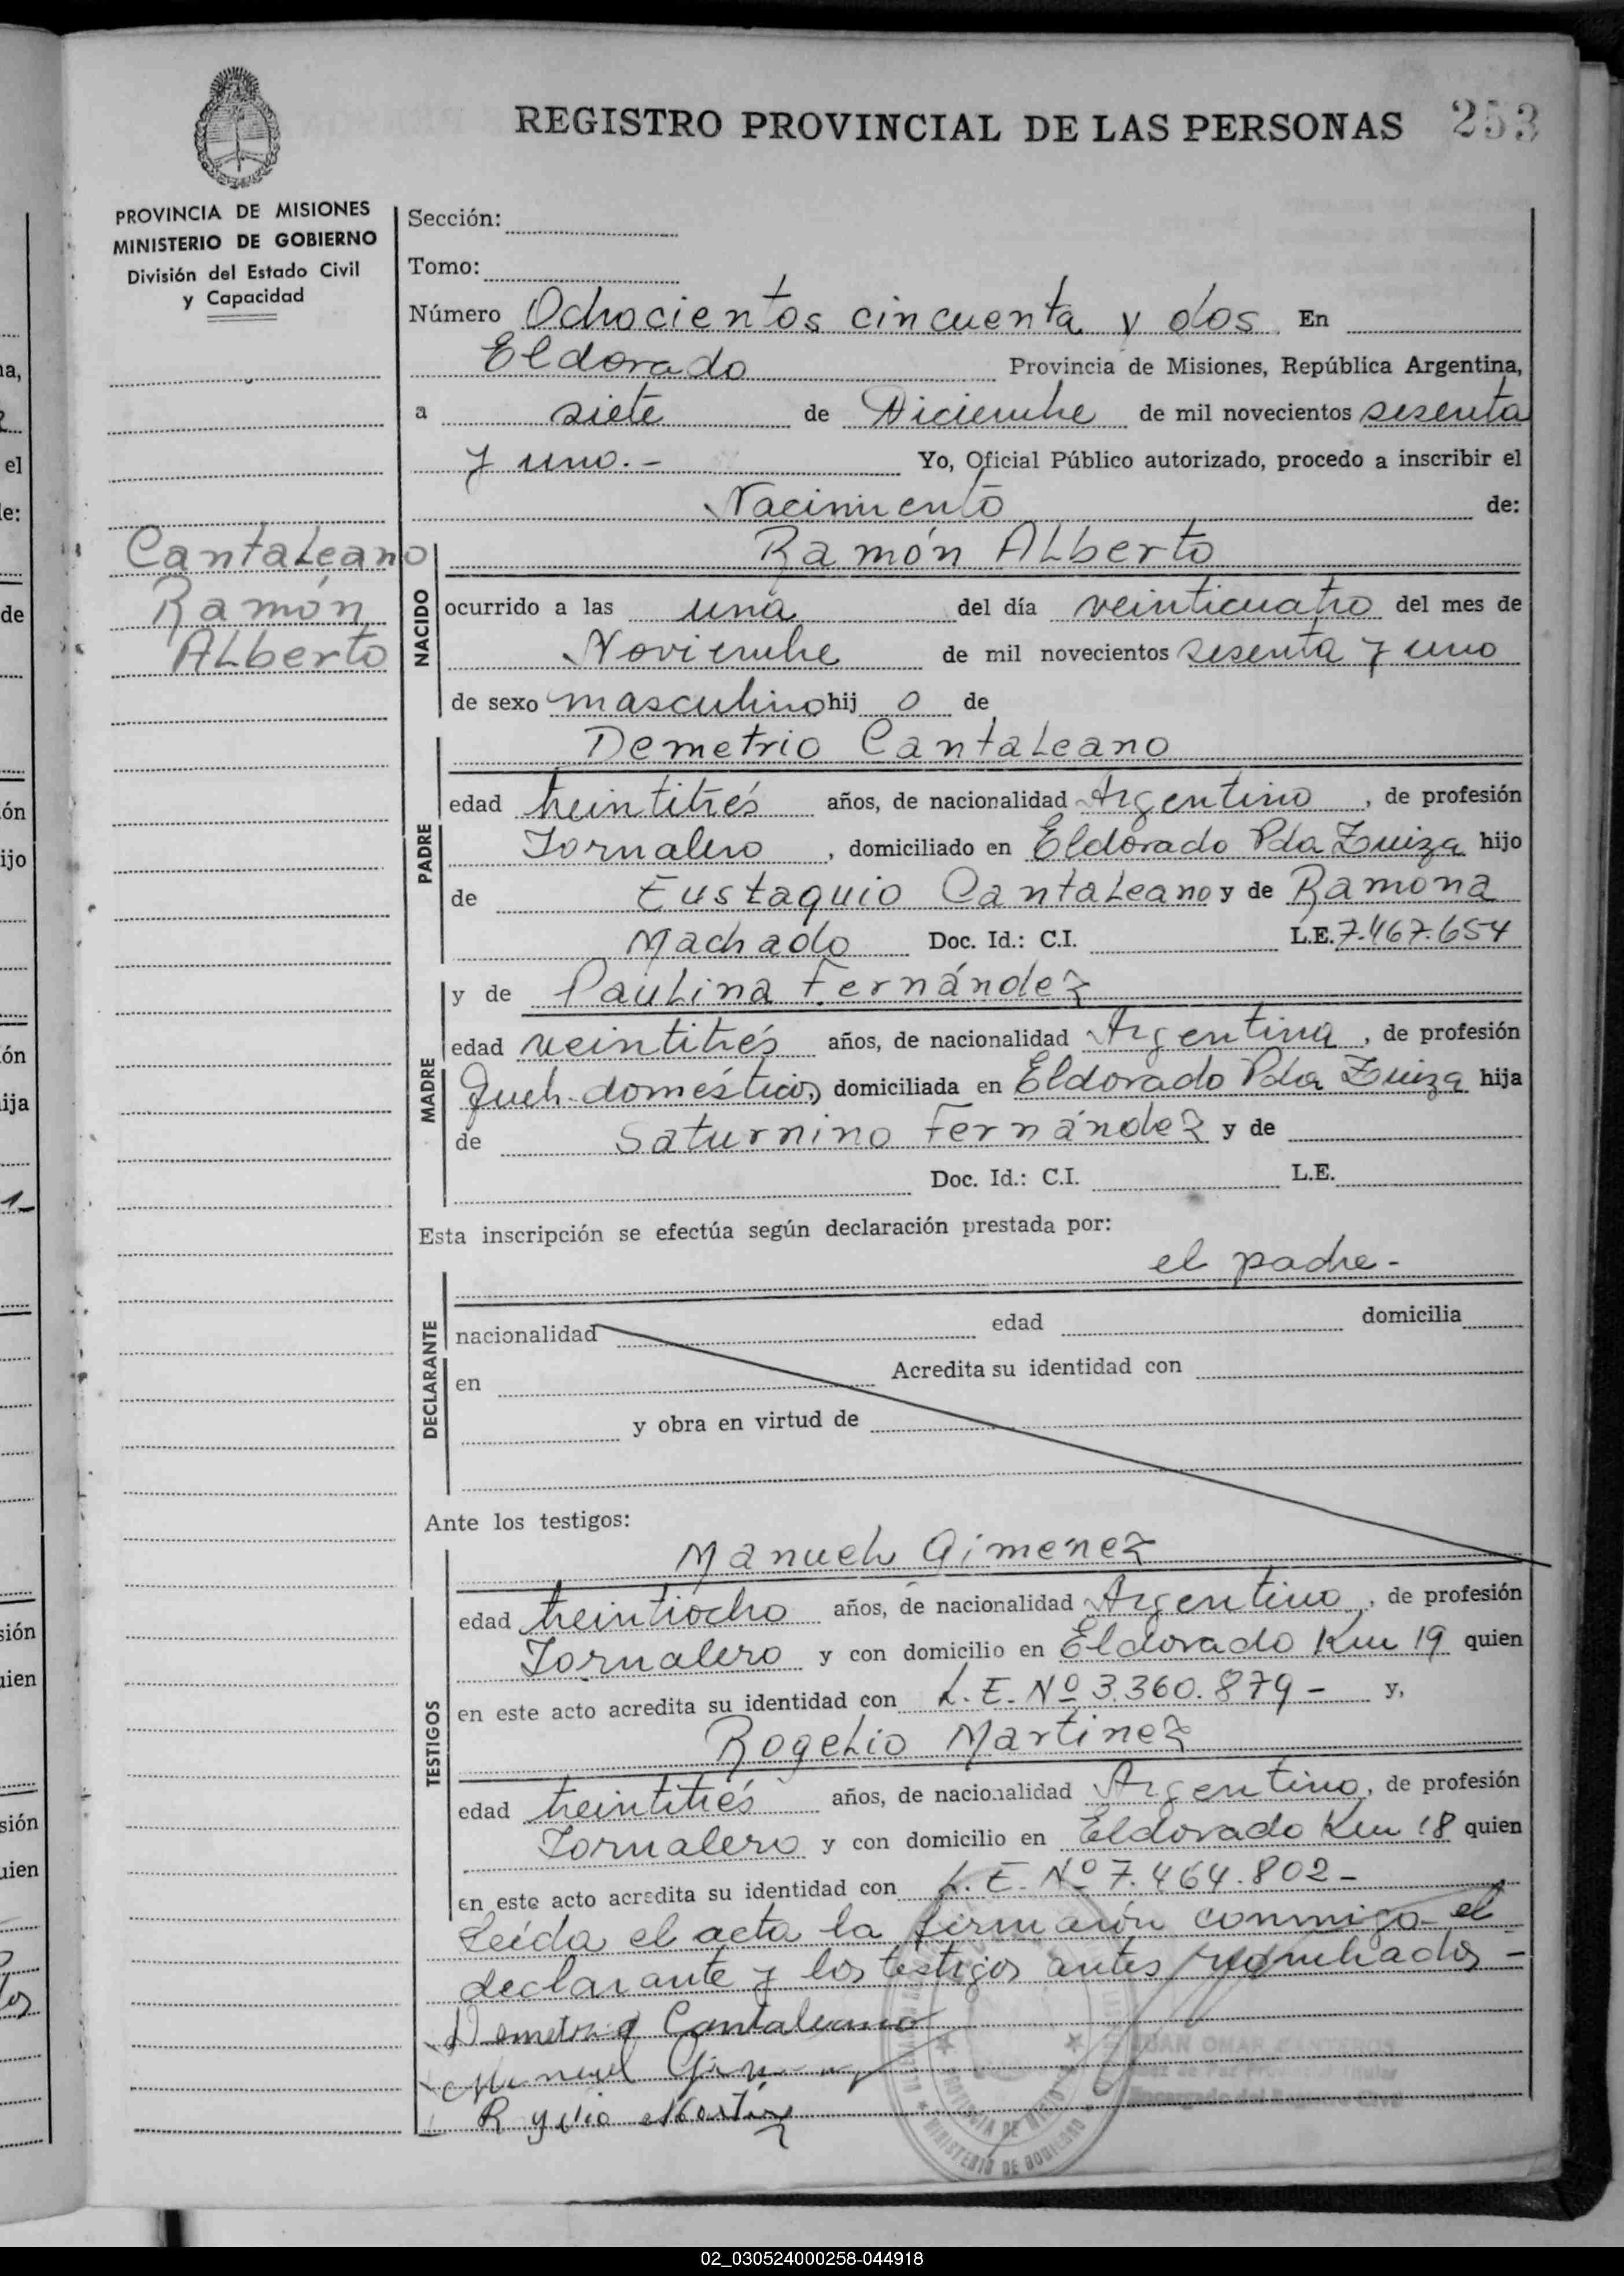 REGISTRO PROVINCIAL DE LAS PERSONAS 253
PROVINCIA DE MISIONES
MINISTERIO DE GOBIERNO
División del Estado Civil
y Capacidad
Cantaleano
Ramón
Alberto
Sección:
Tomo:
Número Ochocientos cincuenta y dos En
Eldorado Provincia de Misiones, República Argentina,
a siete de Diciembre de mil novecientos sesenta
y uno.- Yo, Oficial Público autorizado, procedo a inscribir el
Nacimiento de:
NACIDO
Ramón Alberto
ocurrido a las una del día veinticuatro del mes de
Noviembre de mil novecientos sesenta y uno
de sexo masculino hij o de
PADRE
Demetrio Cantaleano
edad treintitrés años, de nacionalidad Argentino, de profesión
Jornalero, domiciliado en Eldorado Pda Zuiza hijo
de Eustaquio Cantaleano y de Ramona
Machado Doc. Id.: C.I. L.E. 7.467.654
MADRE
y de Paulina Fernández
edad veintitrés años, de nacionalidad Argentina, de profesión
Queh. domésticos, domiciliada en Eldorado Pda Zuiza hija
de Saturnino Fernández y de
Doc. Id.: C.I. L.E.
Esta inscripción se efectúa según declaración prestada por:
el padre-
DECLARANTE
nacionalidad edad domicilia
en Acredita su identidad con
y obra en virtud de
Ante los testigos:
TESTIGOS
Manuel Gimenez
edad treintiocho años, de nacionalidad Argentino, de profesión
Jornalero y con domicilio en Eldorado Km 19 quien
en este acto acredita su identidad con L.E. Nº 3.360.879 - y,
Rogelio Martinez
edad treintitrés años, de nacionalidad Argentino, de profesión
Jornalero y con domicilio en Eldorado Km 18 quien
en este acto acredita su identidad con L.E. Nº 7.464.802-
Leída el acta la firmarón conmigo el
declarante y los testigos antes nombrados-
Demetrio Cantaleano
Manuel
Rogelio Martinez
JUAN OMAR
Juez de Paz Titular
Encargado del Registro Civil
MINISTERIO DE GOBIERNO
PROVINCIA DE MISIONES
02_030524000258-044918